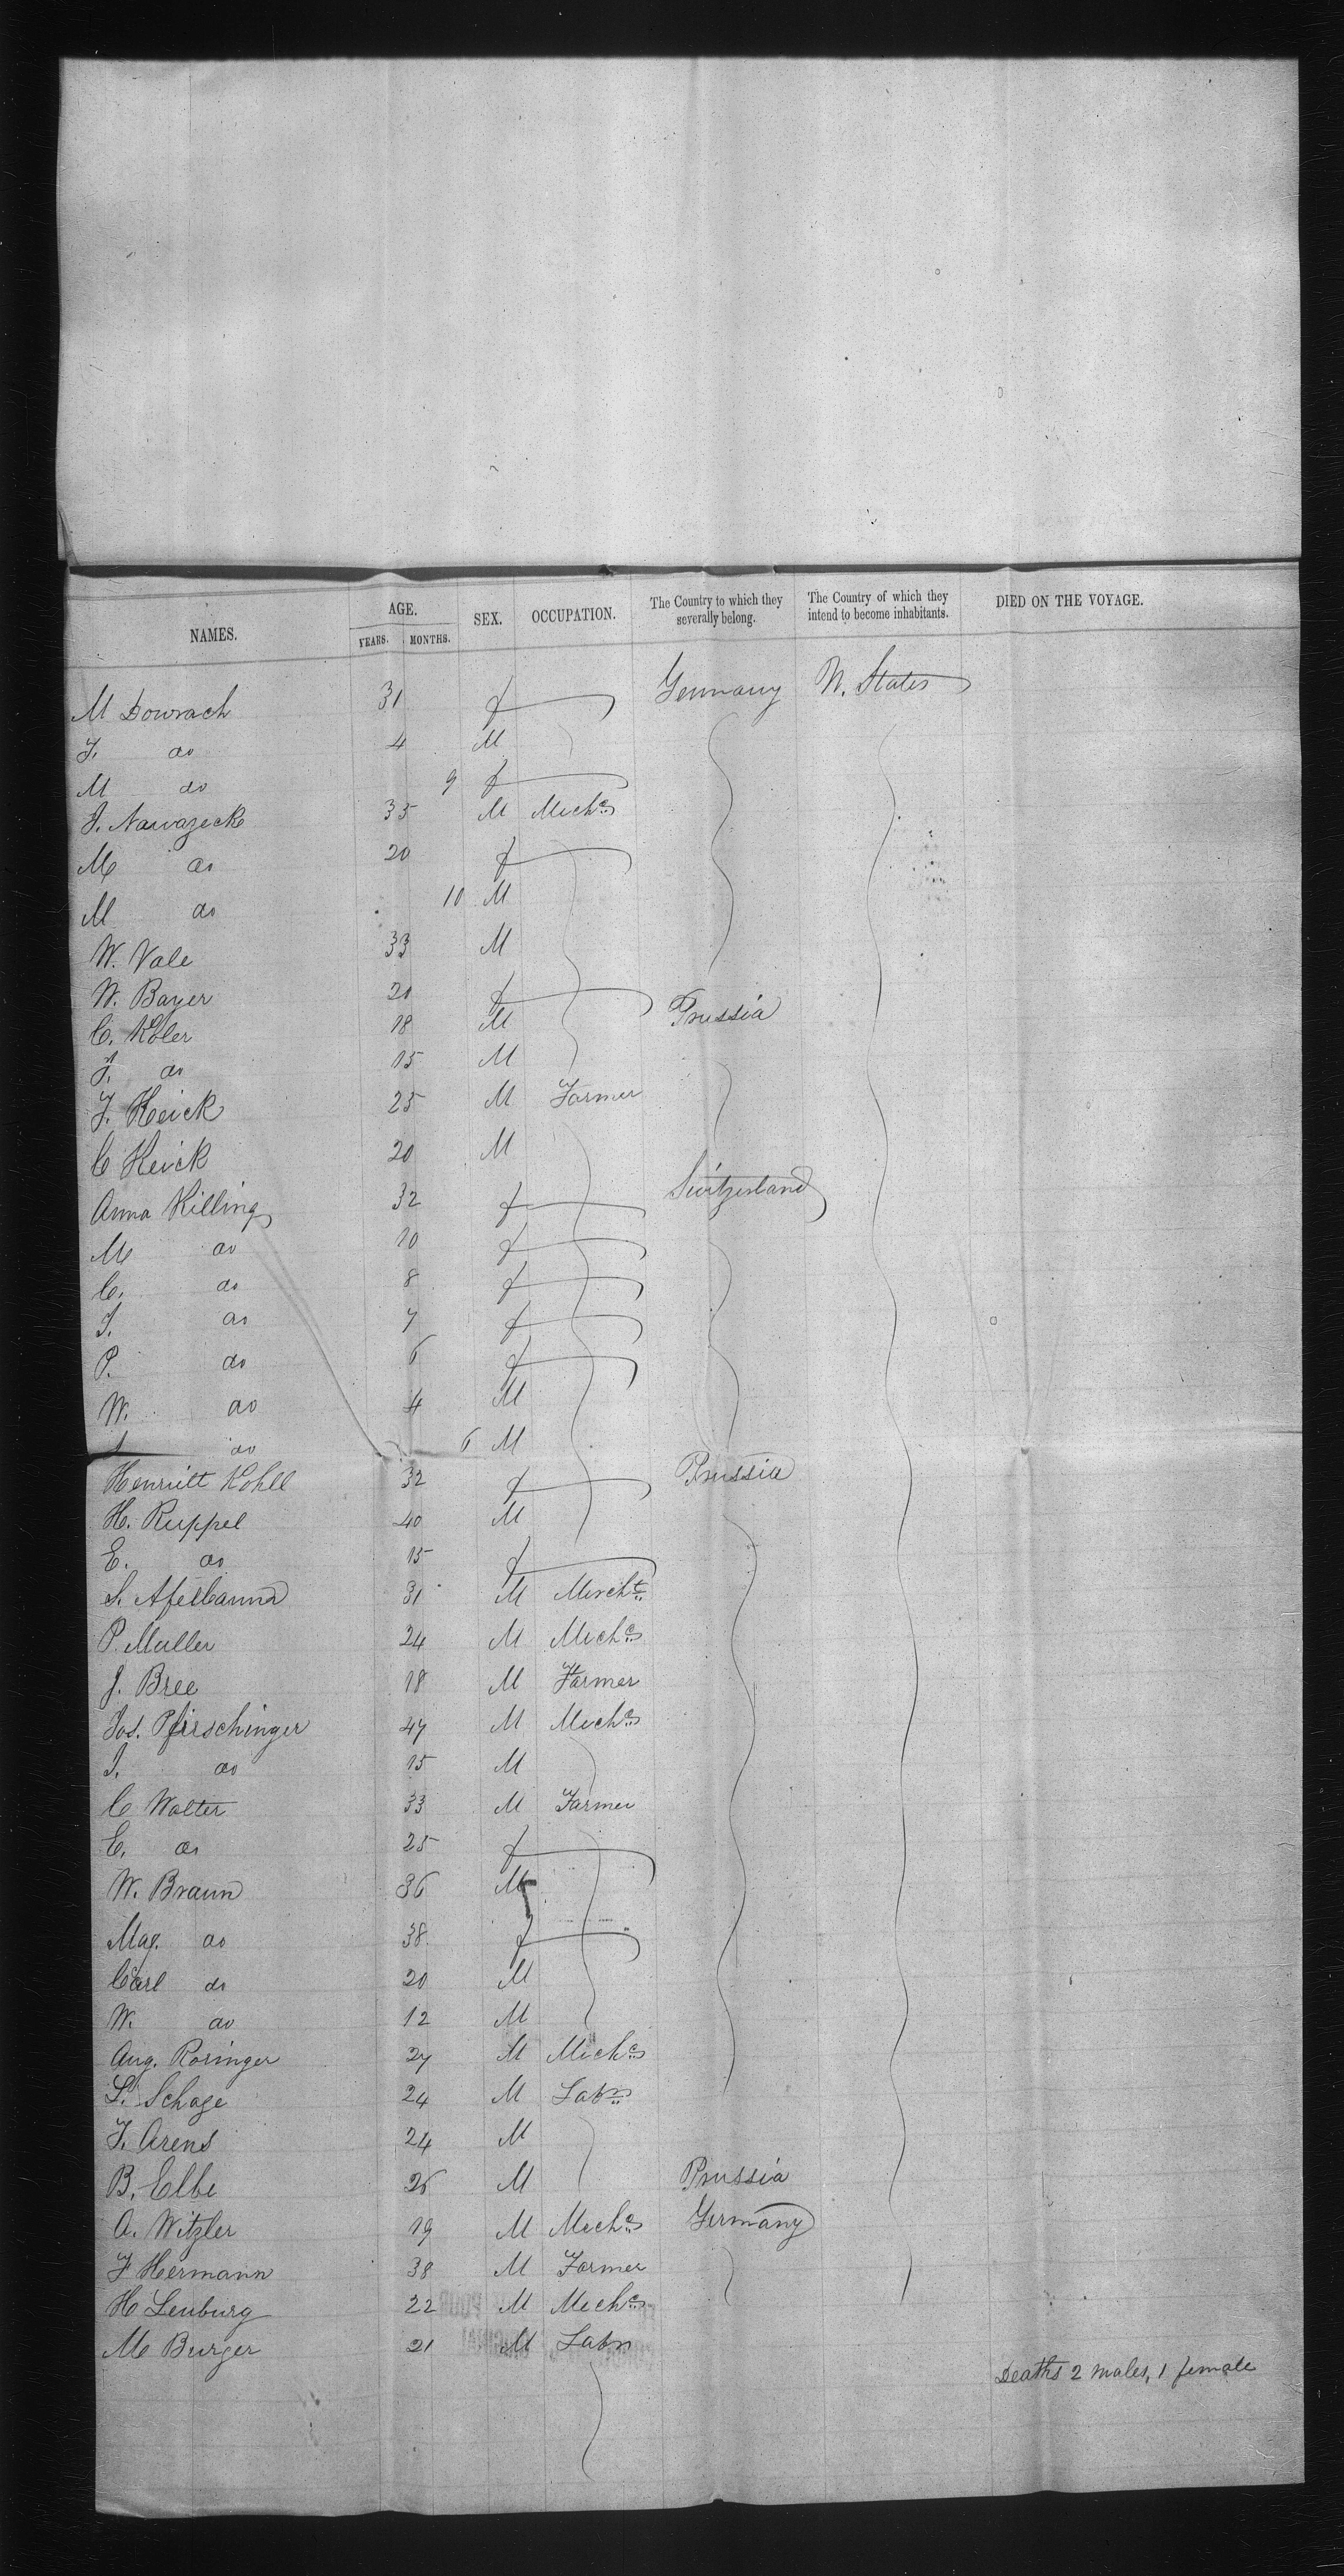 NAMES. AGE. YEARS. MONTHS. SEX. OCCUPATION. The Country to which they severally belong. The Country of which they intend to become inhabitants. DIED ON THE VOYAGE.
M Dowrach 31 f Germany U. States
F. do 4 M
M do 9 f
J. Nawazeck 35 M Mechc
M do 20 f
M do 10 M
W. Vale 33 M
W. Bayer 20 f
C. Koler 18 M Prussia
J. do 15 M
F. Heick 25 M Farmer
C Heick 20 M
Anna Killing 32 f Switzerland
M do 10 f
C. do 8 f
J. do 7 f
P. do 6 f
W. do 4 M
do 6 M
Henriett Kohll 32 f Prussia
H. Ruppel 40 M
E. do 15 f
S. 31 M Mercht
P. Muller 24 M Mechc
J. Bree 18 M Farmer
Jos. Pfirschinger 47 M Mechc
J. do 15 M
C Walter 33 M Farmer
E. do 25 f
W. Braun 36 M
Mag. do 38 f
Carl do 20 M
W. do 12 M
Aug. Roringer 27 M Mechc
L. Schage 24 M Labr
F. Arens 24 M
B. Elbe 26 M Prussia
A. Witzler 19 M Mechc Germany
F Hermann 38 M Farmer
H Lenburg 22 M Mechc
M Burger 21 M Labr
Deaths 2 males, 1 female